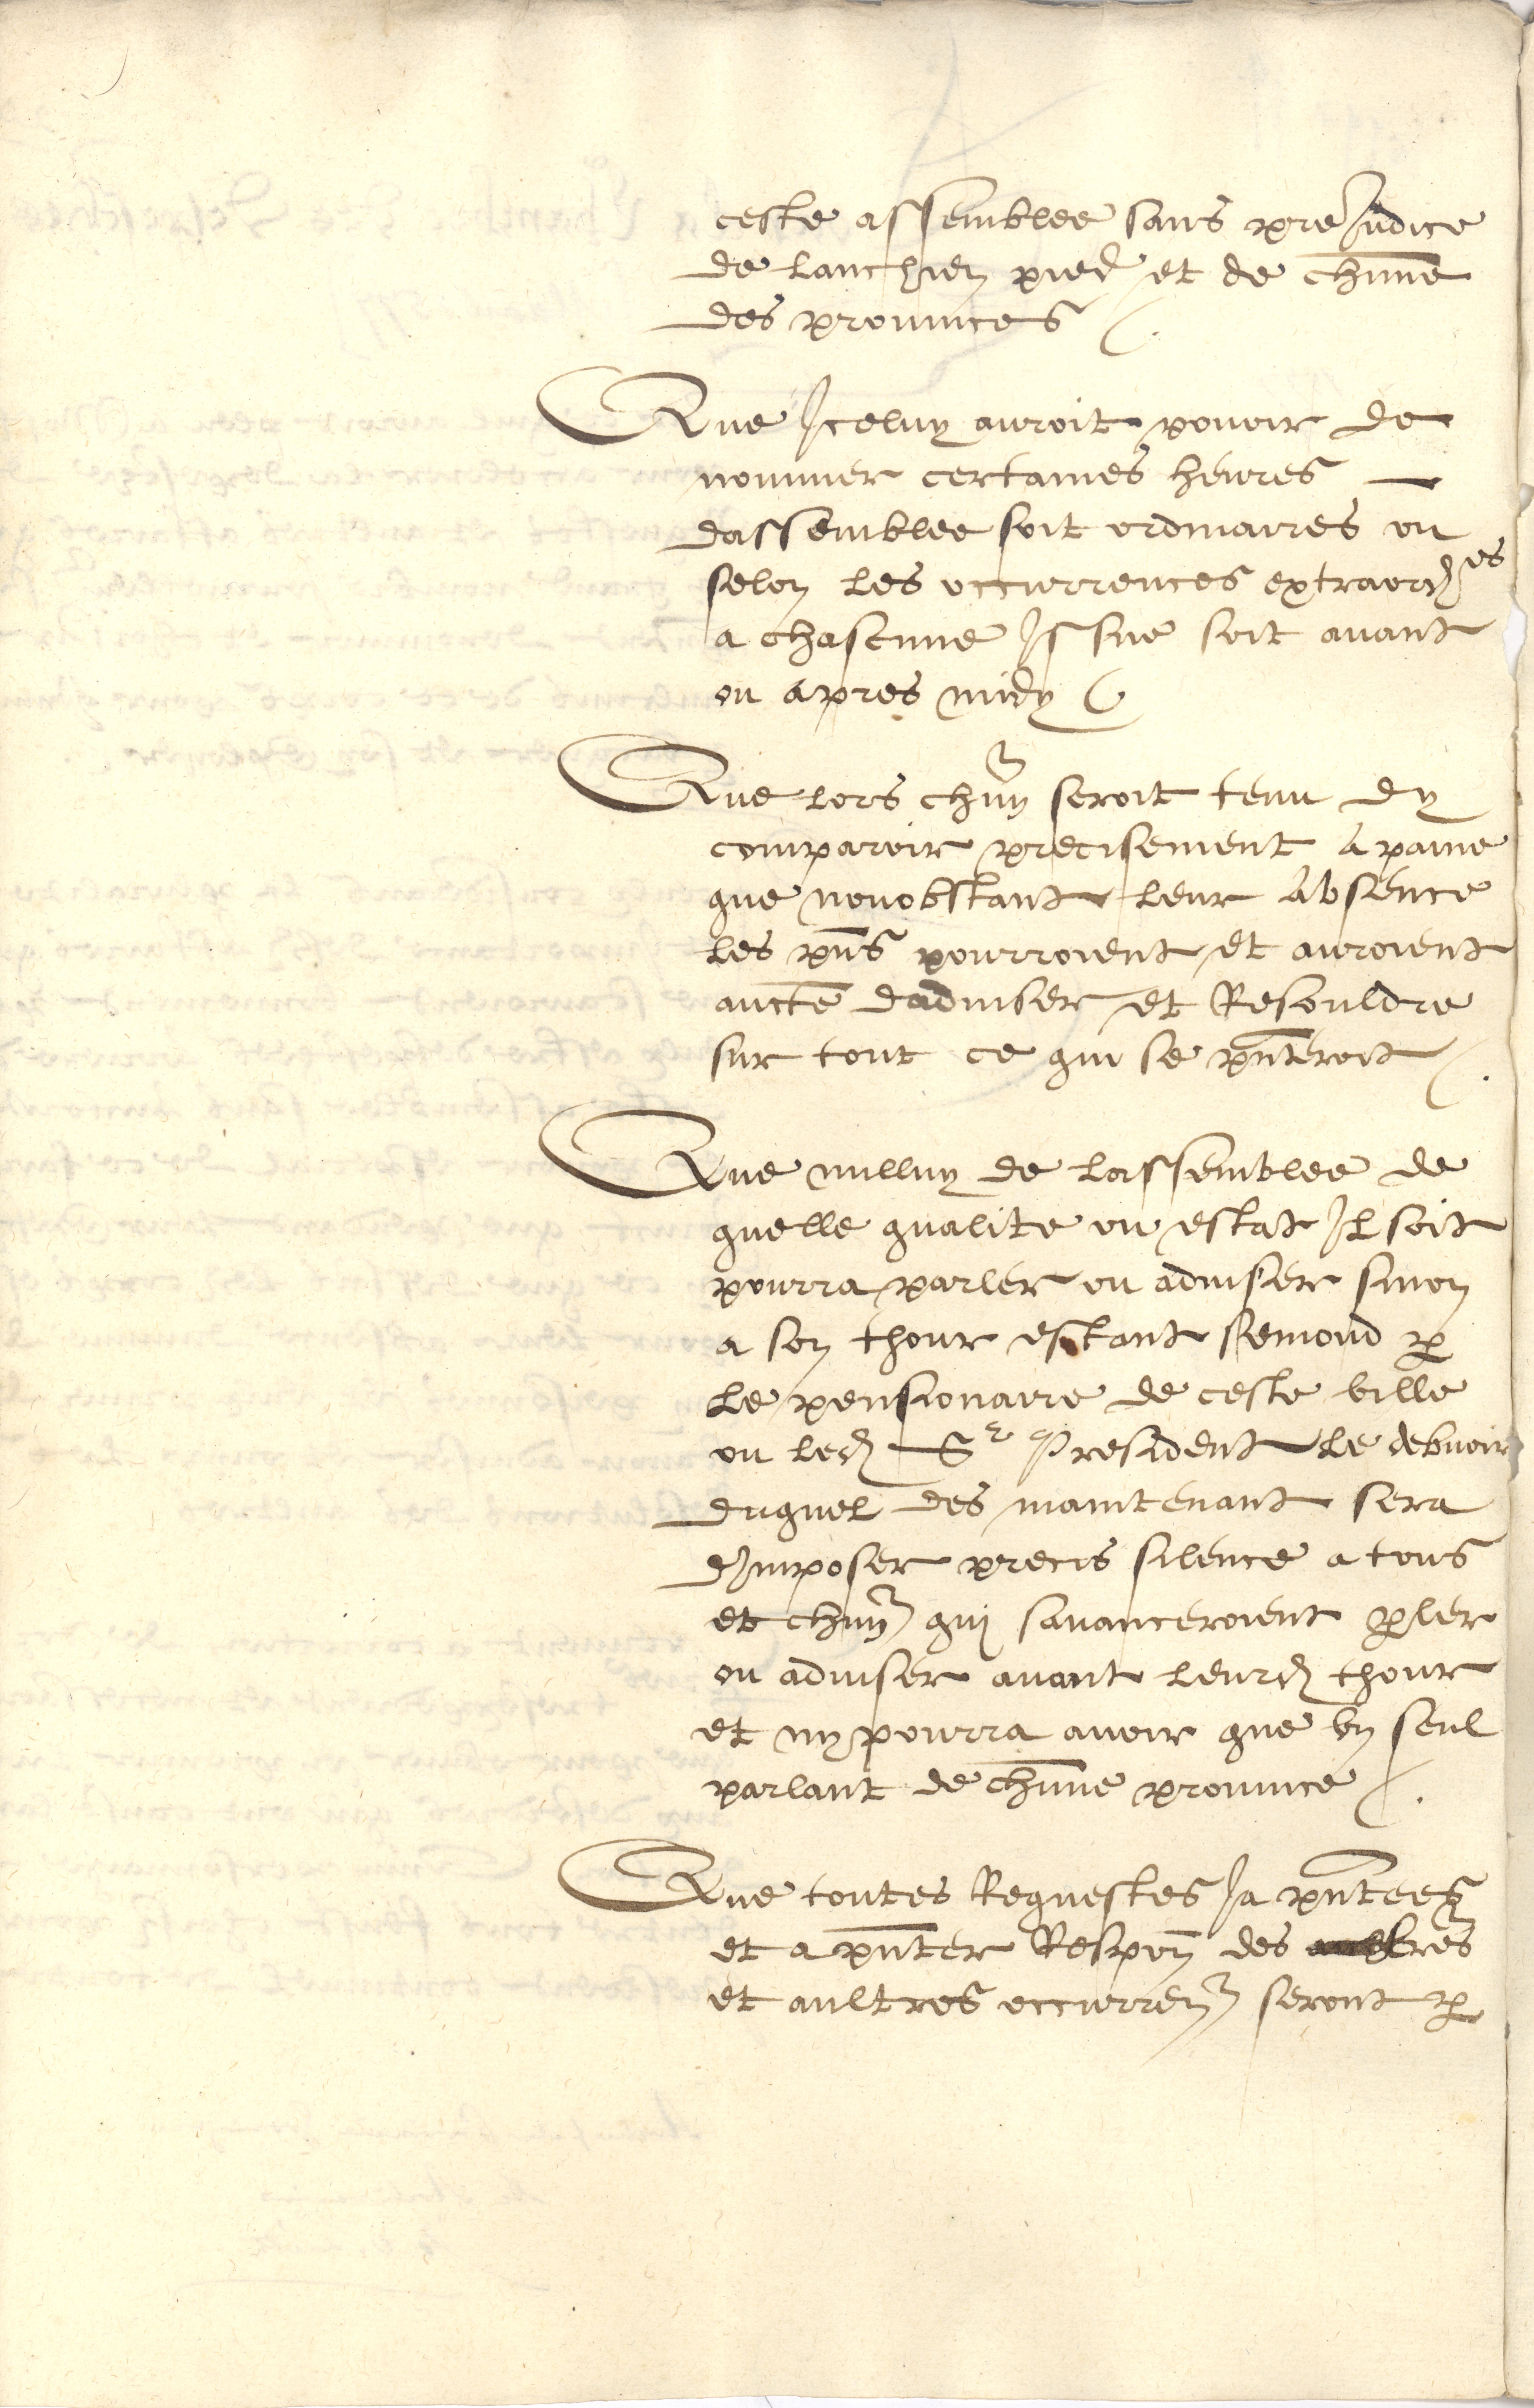 ceste assemblee sans preJudice
de lanchien pied et de chune
des prouinces /.
Que Jceluy auroit pouoir de
nommer certaines heures —
dassemblee soit ordinaires ou
selon les occurrences extraord^es
a chascune Jssue soit auant
ou apres midy
Que lors chun seroit tenu dy
comparoir precisement a paine
que nonobstant leur Absence
les pns pourroient et auroient
aucte dadviser et Resouldre
sur tout ce qui se pnteroit /.
Que nulluy de lassemblee de
quelle qualite ou estat Jl soit
pourra parler ou adviser sinon
a son thour estant semond p
le pensionaire de ceste ville
ou led Sr President le debuoir
duquel des maintenant sera
dJmposer precis silence a tous
et chun quj sauanceroient pler
ou adviser auant leurd thour
et ny pourra auoir que vn seul
parlant de chune prouince /.
Que toutes Requestes Ja pntees
et a pnter Respon des lres
et aultres occurren seront p